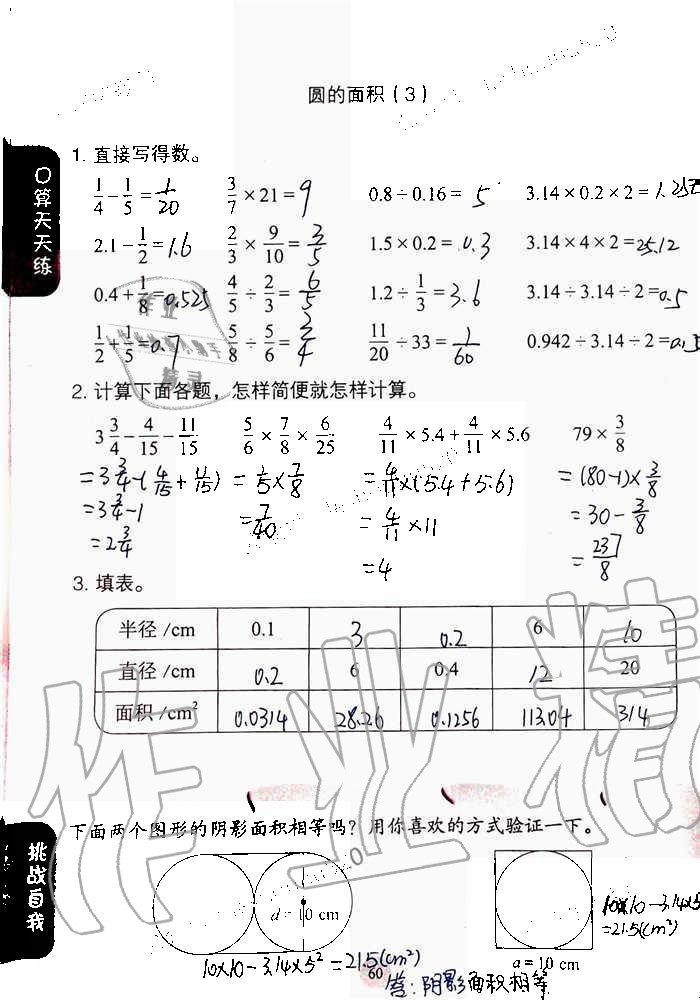 圆的面积（3）
1. 直接写得数。
1/4 − 1/5 = 1/20  3/7 × 21 = 9  0.8 ÷ 0.16 = 5  3.14 × 0.2 × 2 =
2.1 − 1/2 = 1.6  2/3 × 9/10 = 3/5  1.5 × 0.2 = 0.3  3.14 × 4 × 2 = 25.12
0.4 + 1/8 = 0.525  4/5 ÷ 2/3 = 6/5  1.2 ÷ 1/3 = 3.6  3.14 ÷ 3.14 ÷ 2 = 0.5
1/2 + 1/5 = 0.7  5/8 ÷ 5/6 = 3/4  11/20 ÷ 33 = 1/60  0.942 ÷ 3.14 ÷ 2 =
口算天天练
2. 计算下面各题，怎样简便就怎样计算。
3 3/4 − 4/15 − 11/15  5/6 × 7/8 × 6/25  4/11 × 5.4 + 4/11 × 5.6  79 × 3/8
= 3 3/4 − (4/15 + 11/15)  = 1/5 × 7/8  = 4/11 × (5.4 + 5.6)  = (80 − 1) × 3/8
= 3 3/4 − 1  = 7/40  = 4/11 × 11  = 30 − 3/8
= 2 3/4  = 4  = 237/8
3. 填表。
半径/cm  0.1  3  0.2  6  10
直径/cm  0.2  6  0.4  12  20
面积/cm²  0.0314  28.26  0.1256  113.04  314
作业精
挑战自我
下面两个图形的阴影面积相等吗？用你喜欢的方式验证一下。
d = 10 cm
10×10 − 3.14×5² = 21.5(cm²)
10×10 − 3.14×5
= 21.5(cm²)
a = 10 cm
60
答：阴影面积相等